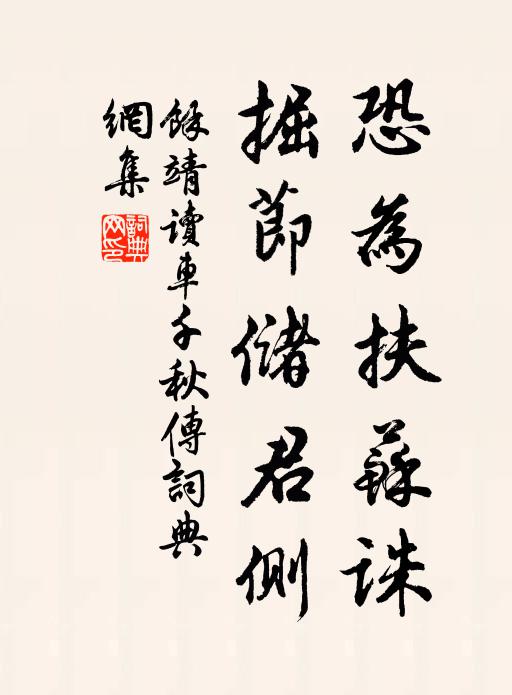 恐為扶蘇誅
掘節儲君側
餘靖讀車千秋傳詞典
網集
詞典網印